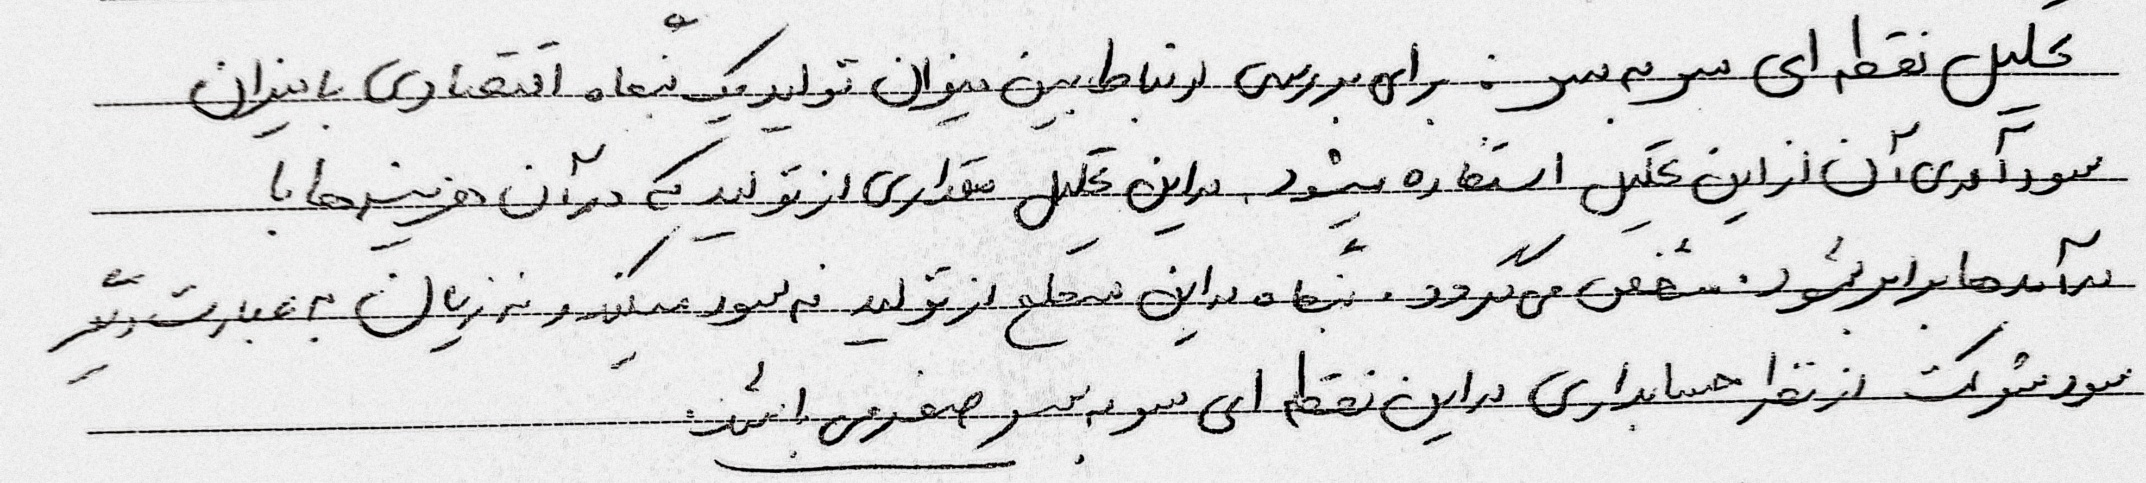 تحلیل نقطه ای سر به سر : برای بررسی ارتباط بین میزان تولید یک بنگاه اقتصادی با میزان
سودآوری آن از این تحلیل استفاده میشود. در این تحلیل مقداری از تولید که در آن هزینه ها با
درآمدها برابر میشود. مشخص می گردد. بنگاه در این سطح از تولید نه سود میکند و نه زیان به عبارت دیگر
سود شرکت از نظر حسابداری در این نقطه ای سر به سر صفر می باشد.